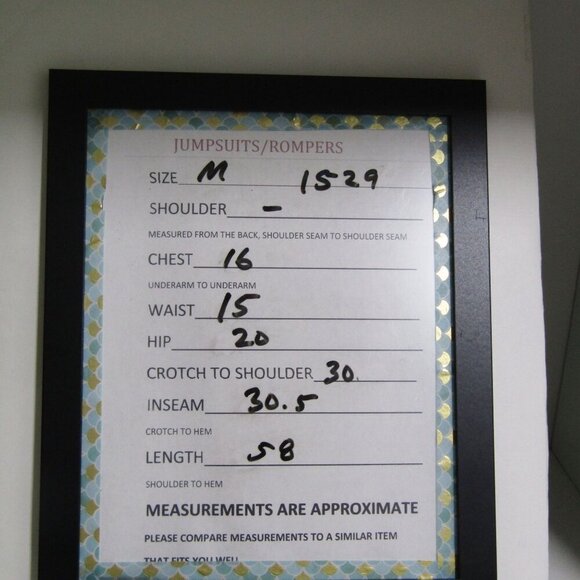 JUMPSUITS/ROMPERS
SIZE M 1529
SHOULDER -
MEASURED FROM THE BACK, SHOULDER SEAM TO SHOULDER SEAM
CHEST 16
UNDERARM TO UNDERARM
WAIST 15
HIP 20
CROTCH TO SHOULDER 30
INSEAM 30.5
CROTCH TO HEM
LENGTH 58
SHOULDER TO HEM
MEASUREMENTS ARE APPROXIMATE
PLEASE COMPARE MEASUREMENTS TO A SIMILAR ITEM
THAT FITS YOU WELL